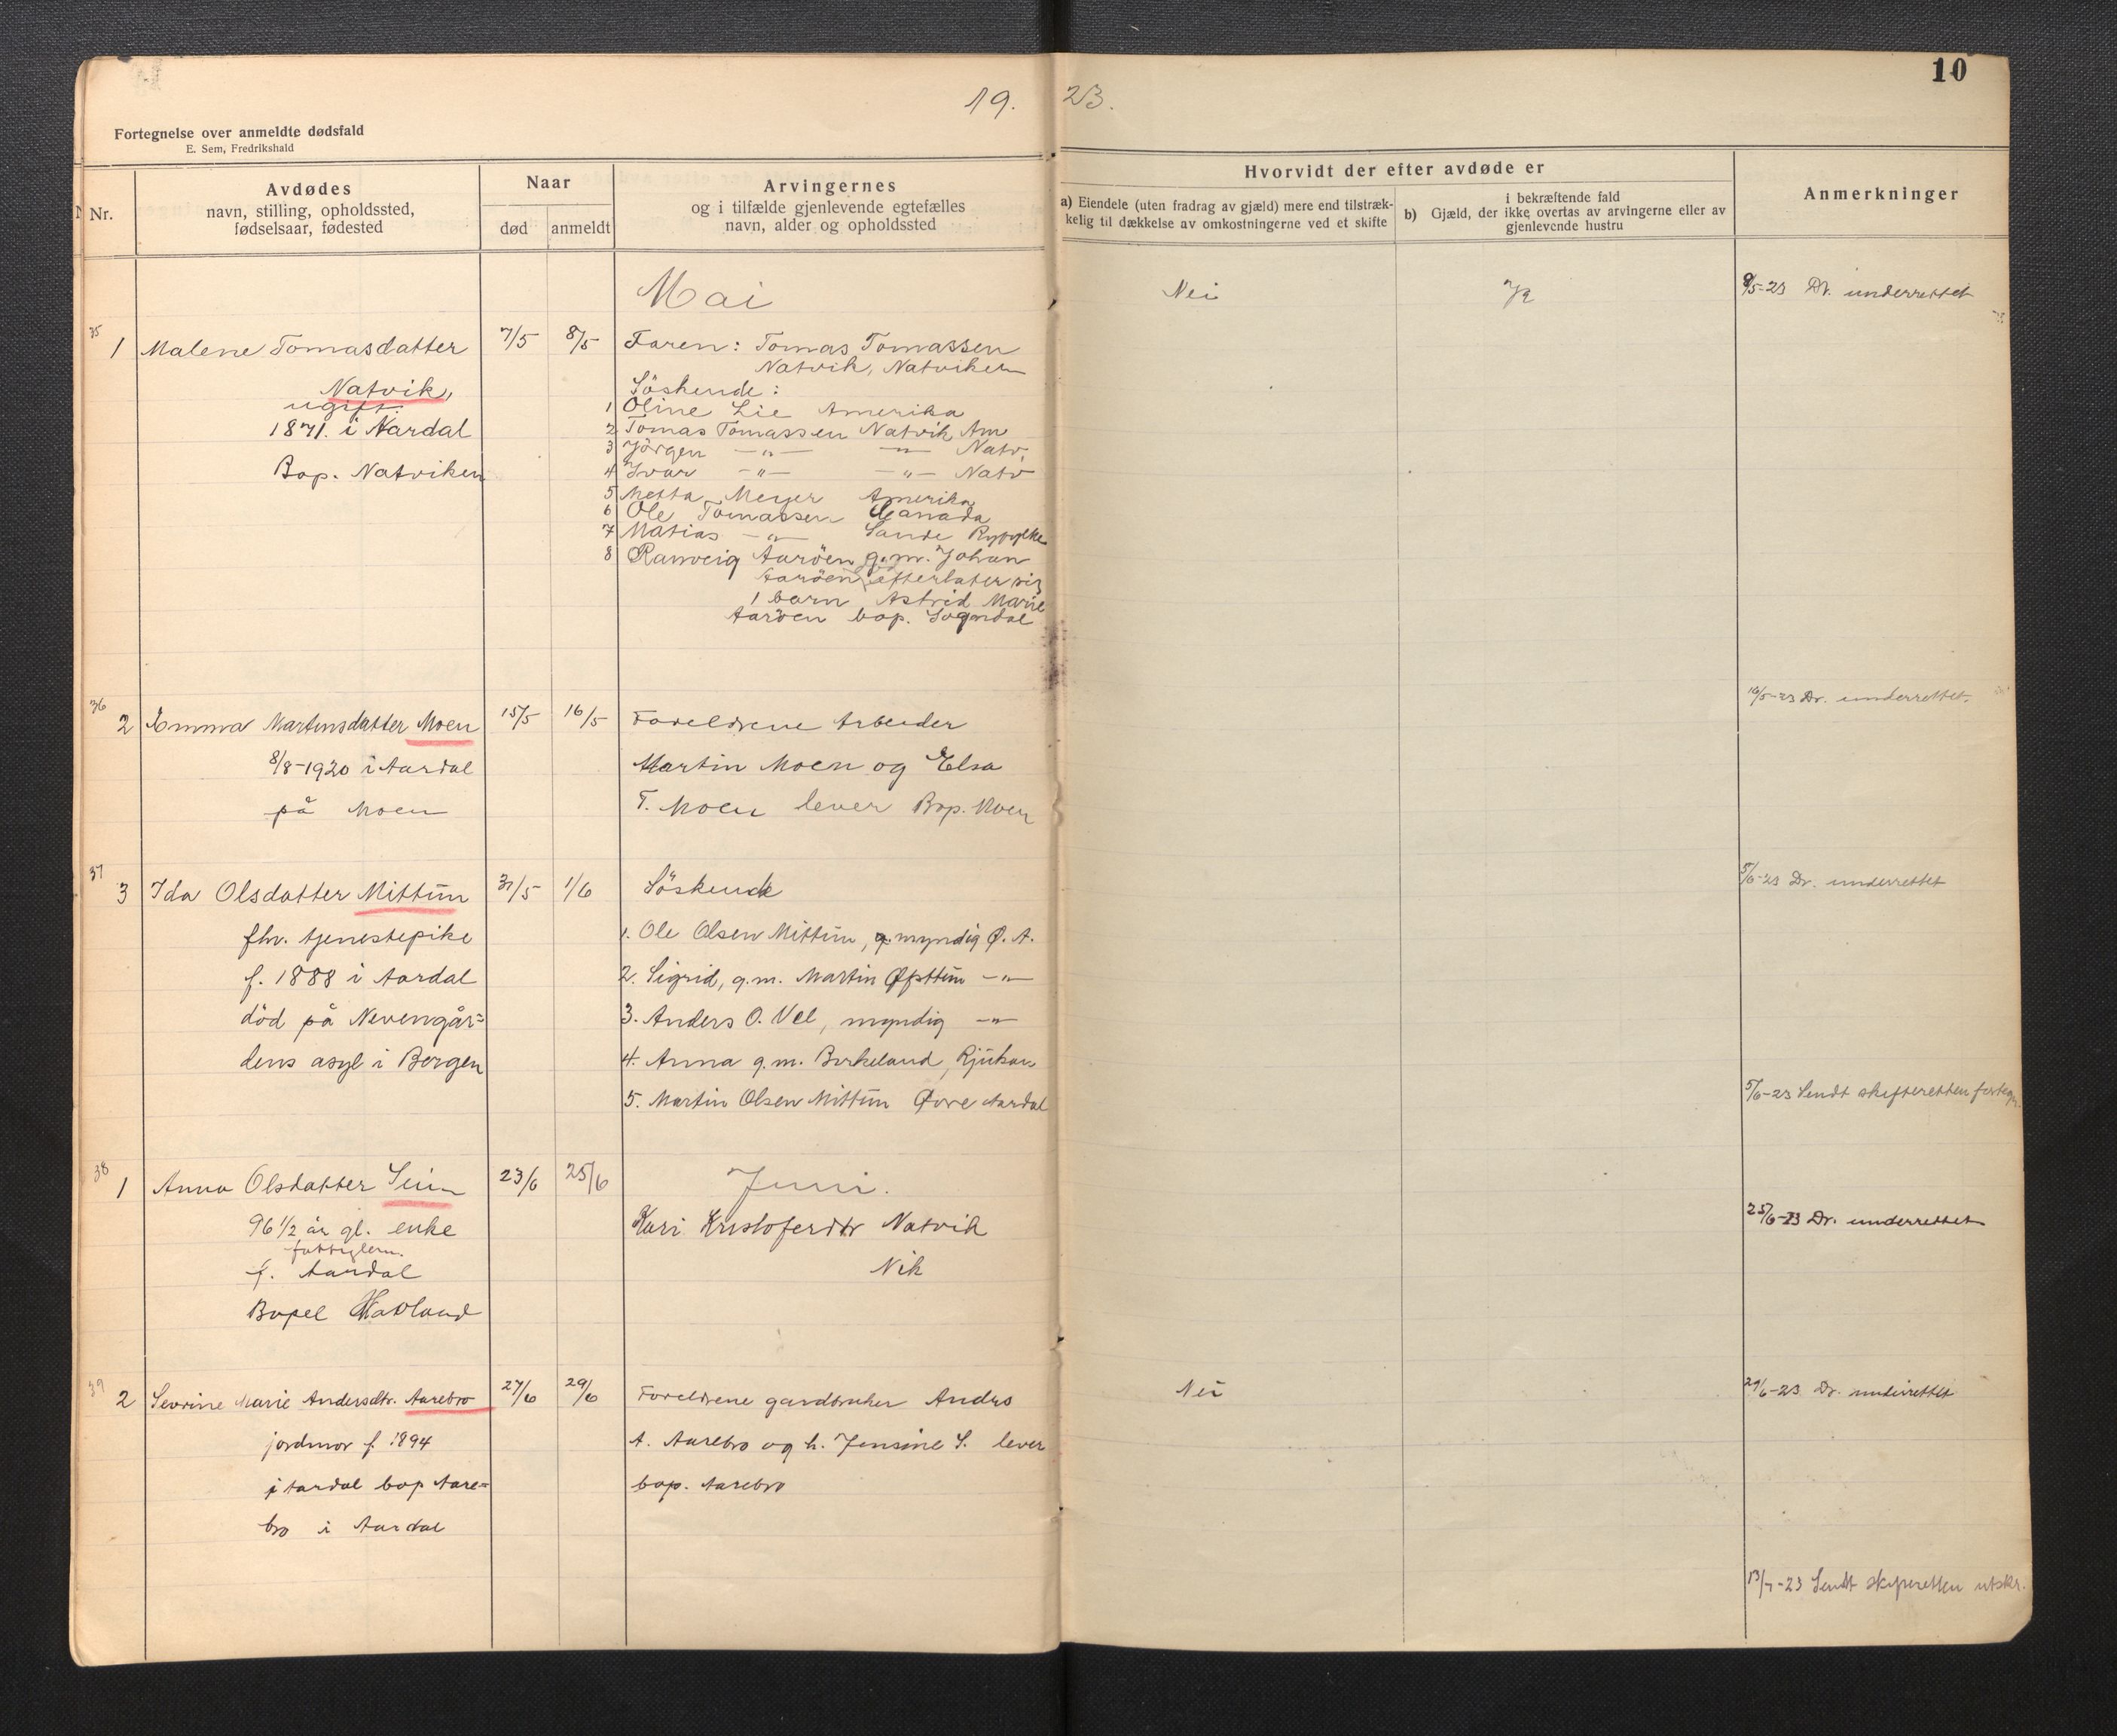 10
19. 23.
Fortegnelse over anmeldte dødsfald
E. Sem, Fredrikshald
Nr.
Avdødes
navn, stilling, opholdssted,
fødselsaar, fødested
Naar
død
anmeldt
Arvingernes
og i tilfælde gjenlevende egtefælles
navn, alder og opholdssted
Hvorvidt der efter avdøde er
a) Eiendele (uten fradrag av gjæld) mere end tilstræk-
kelig til dækkelse av omkostningerne ved et skifte
b) i bekræftende fald
Gjæld, der ikke overtas av arvingerne eller av
gjenlevende hustru
Anmerkninger
Mai
Nei
9/5-23 Dr. underrettet
35
1 Malene Tomasdatter 7/5 8/5 Faren: Tomas Tomassen
Natvik, Natviken
Natvik, Söskende:
ugift.
1 Oline Lie Amerika
1871. i Aardal 2 Tomas Tomassen Natvik Am
3 Jörgen -"- -"- Natv.
Bop. Natviken 4 Ivar -"- -"- Natv
5 Metta Meyer Amerika
6 Ole Tomassen Canada
7 Matias -"- Sande Ryfylke
8 Ranveig Aaröen g.m. Johan
Aaröen efterlater sig
1 barn Astrid Marie
Aaröen bop. Sogndal
36
2 Emma Martinsdatter Moen 15/5 16/5 Foreldrene Arbeider 16/5-23 Dr. underrettet.
8/8-1920 i Aardal Martin Moen og Elsa
på Moen T. Moen lever Bop. Moen
37
3 Ida Olsdatter Mittun 31/5 1/6 Söskende 5/6-23 Dr. underrettet
fhv. tjenestepike 1. Ole Olsen Mittun, g. myndig Ø. A.
f. 1888 i Aardal 2. Sigrid, g.m. Martin Øpsttun -"-
död på Nevengår= 3. Anders O. Vee, myndig -"-
dens asyl i Bergen 4. Anna g.m. Birkeland, Rjukan
5. Martin Olsen Mittun Øvre Aardal 5/6-23 Sendt skifteretten fortegn.
38
1 Anna Olsdatter Seim 23/6 25/6 Juni.
96 1/2 år gl. enke Kari Kristoferdtr Natvik 25/6-23 Dr. underrettet
fattiglem.
f. Aardal Nik
Bopel Hatland
39
2 Sevrine Marie Andersdtr. Aarebro 27/6 29/6 Foreldrene gardbruker Anders Nei 29/6-23 Dr. underrettet
jordmor f. 1894 A. Aarebro og h. Jensine S. lever
i Aardal bop Aare= bop. Aarebro
bro i Aardal
13/7-23 Sendt skifteretten utskr.